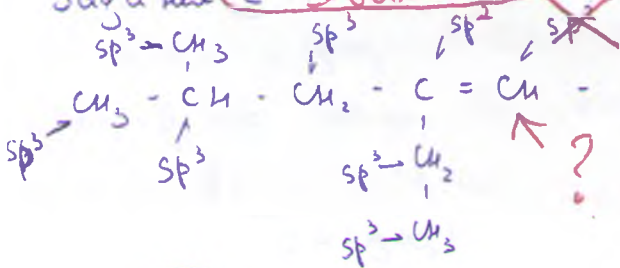 sp³ CH₃ sp³ sp² sp²
CH₃ - CH - CH₂ - C = CH -
sp³ sp³ sp³ CH₂ ?
sp³ CH₃